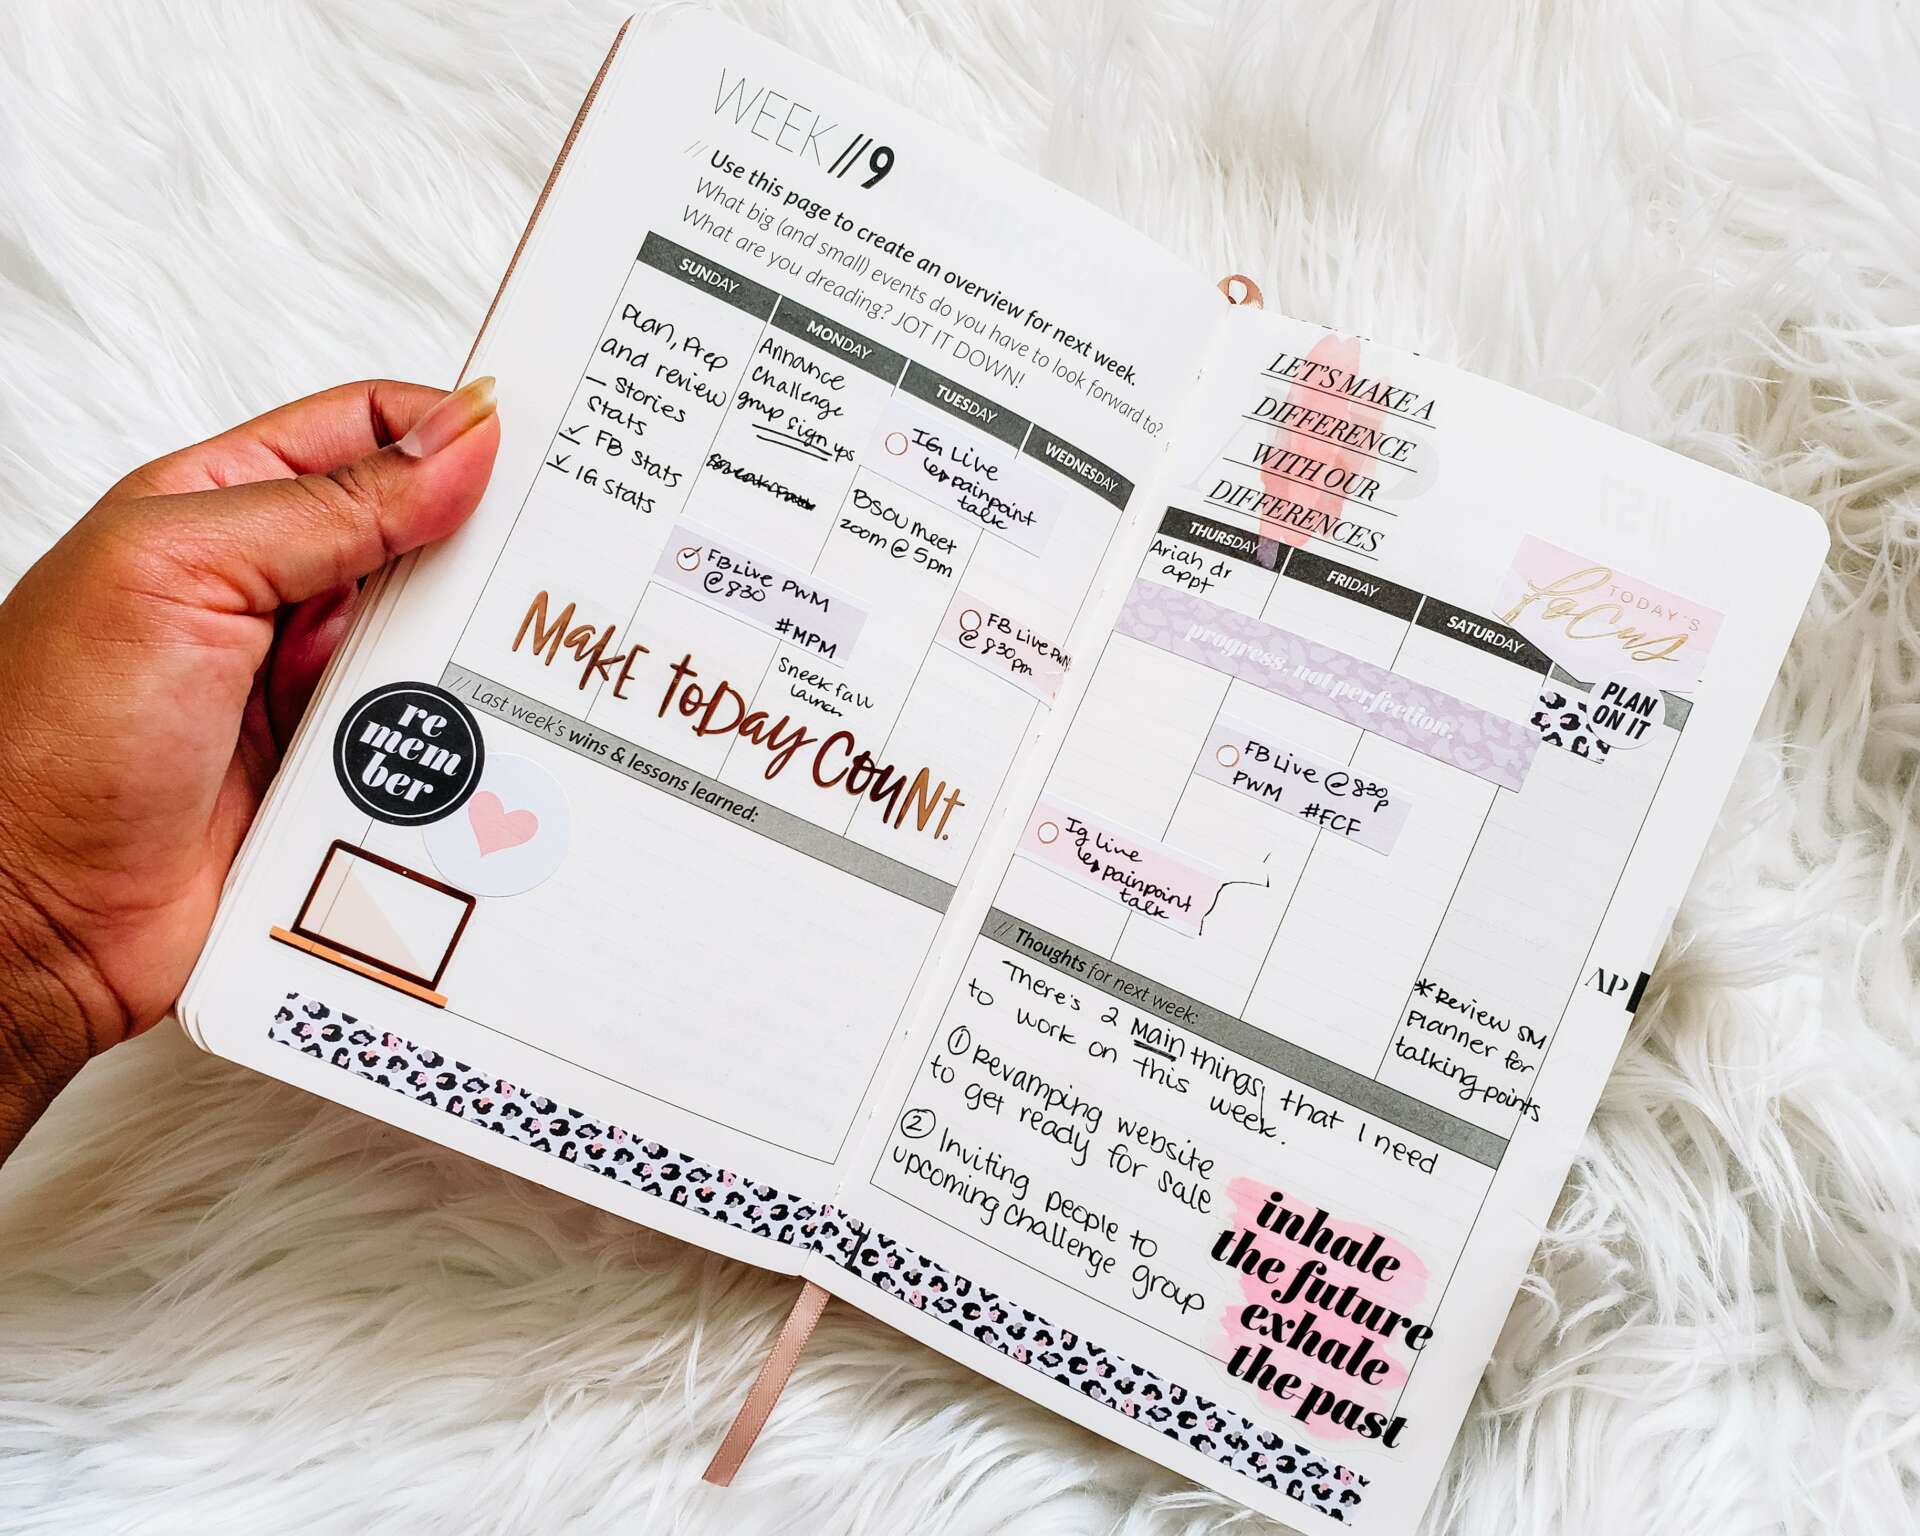 WEEK // 9
// Use this page to create an overview for next week.
What big (and small) events do you have to look forward to?
What are you dreading? JOT IT DOWN!
SUNDAY
Plan, Prep
and review
- Stories
Stats
✓ FB Stats
✓ IG Stats
MONDAY
Annonce
challenge
group sign ups
FB Live PWM
@ 830
#MPM
Sneek fall
launch
TUESDAY
IG Live
↳ painpoint
talk
BSOU meet
zoom @ 5pm
WEDNESDAY
FB Live PWM
@ 830pm
MAKE TODAY COUNT.
// Last week's wins & lessons learned:
re
mem
ber
LET'S MAKE A
DIFFERENCE
WITH OUR
DIFFERENCES
THURSDAY
Ariah dr
appt
progress, not perfection.
Ig Live
↳ painpoint
talk
FRIDAY
FB Live @ 830p
PWM #FCF
SATURDAY
*Review SM
Planner for
talking points
TODAY'S
focus
PLAN
ON IT
AP
// Thoughts for next week:
There's 2 Main things that I need
to work on this week.
① Revamping website
to get ready for sale
② Inviting people to
upcoming challenge group
inhale
the future
exhale
the past